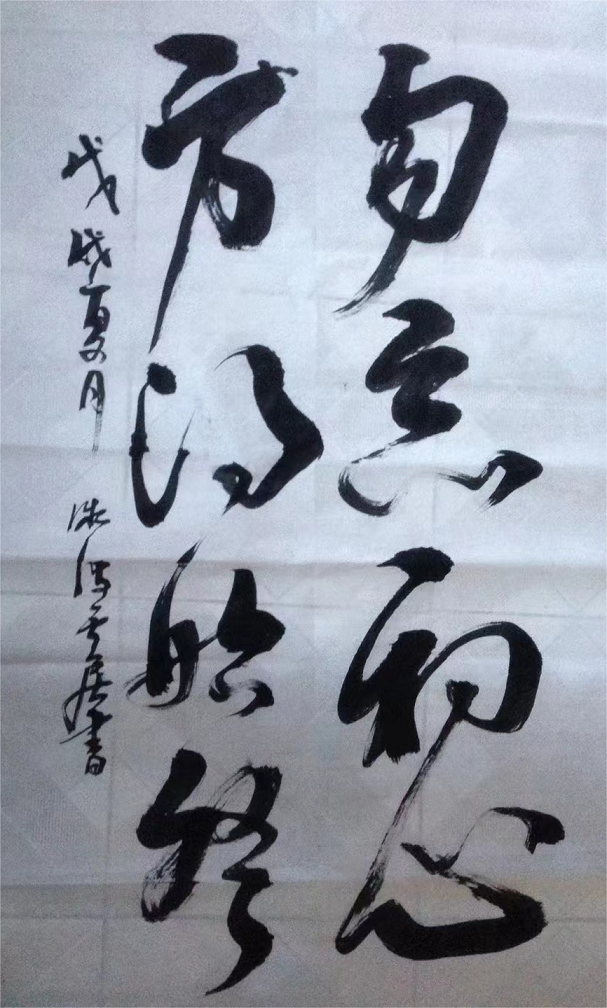 勿忘初心
方得始终
戊戌夏月
書